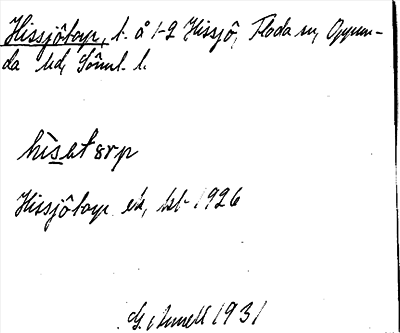 Hissjötorp, t. å 1-2 Hissjö, Floda sn, Oppun-
da hd, Söml. l.
hisætɤrp
Hissjötorp ek, kbt 1926
G. Amell 1931